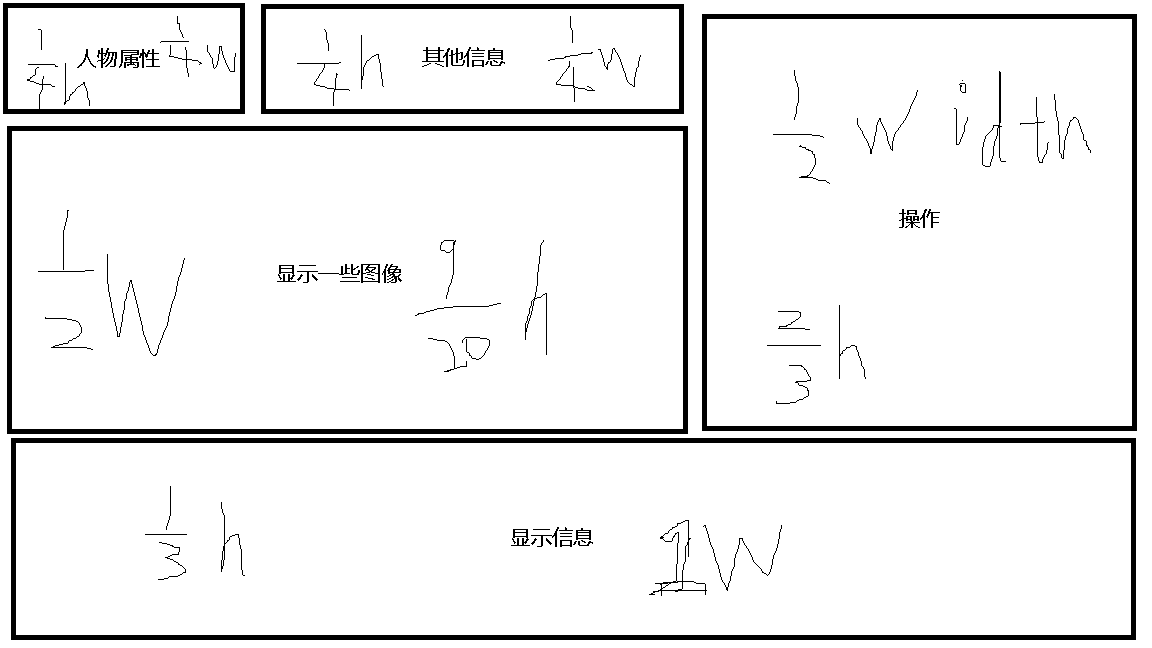 1/4 h 人物属性 1/4 w
1/4 h 其他信息 1/4 w
1/2 width
操作
2/3 h
1/2 W 显示一些图像 9/20 h
1/3 h 显示信息 1W